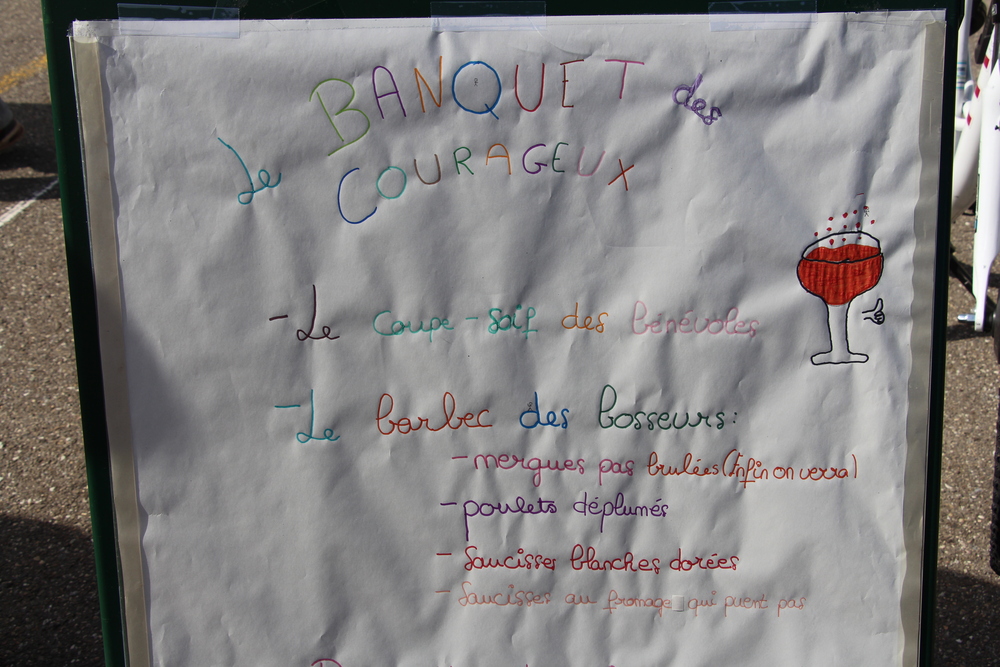 Le BANQUET des
COURAGEUX
- Le coupe-soif des bénévoles
- Le barbec des bosseurs:
- mergues pas brulées (Enfin on verra)
- poulets déplumés
- Saucisses blanches dorées
- Saucisses au fromage qui puent pas